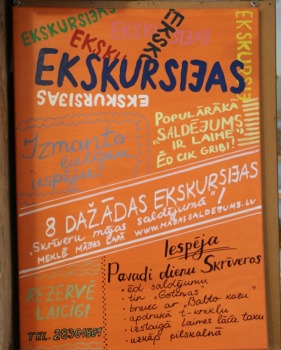 EKSKURSIJAS
EKSKURSIJAS
EKSKURSIJAS
EKSKURSIJAS
EKSKURSIJAS
POPULĀRĀKĀ
"SALDĒJUMS
IR LAIME,
ĒD CIK GRIBI!"
Izmanto
iespēju!
8 DAŽĀDAS EKSKURSIJAS
"Skrīveru mājas saldējumā"!
MEKLĒ MĀJAS LAPĀ WWW.MAJASSALDEJUMS.LV
Iespēja
Pavadi dienu Skrīveros
• ēd saldējumu
• tin "Gotiņas"
• brauc ar "Balto kazu"
• apdrukā t-kreklu
• izstaigā laimes lāča taku
• uzkāp pilskalnā
REZERVĒ
LAICĪGI
TEL.